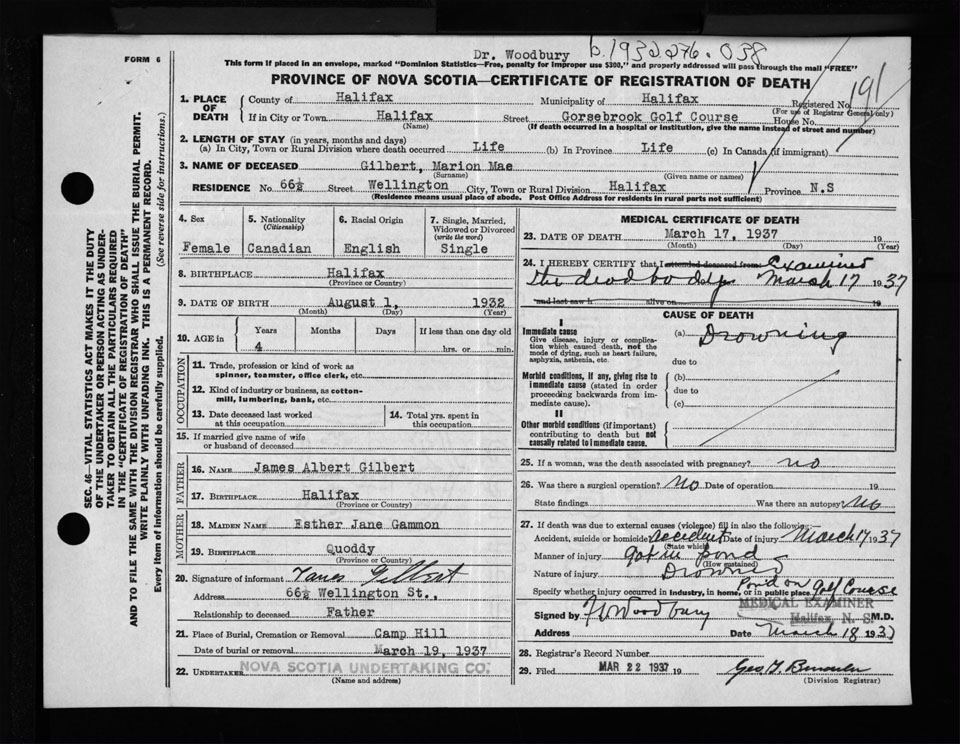 FORM 6
Dr. Woodbury b.1932 276.038
This form if placed in an envelope, marked "Dominion Statistics—Free, penalty for improper use $300," and properly addressed will pass through the mail "FREE"
PROVINCE OF NOVA SCOTIA—CERTIFICATE OF REGISTRATION OF DEATH
191
1. PLACE OF DEATH
County of Halifax Municipality of Halifax Registered No.
(For use of Registrar General only)
If in City or Town Halifax Street Gorsebrook Golf Course House No.
(Name) (If death occurred in a hospital or institution, give the name instead of street and number)
2. LENGTH OF STAY (in years, months and days)
(a) In City, Town or Rural Division where death occurred Life (b) In Province Life (c) In Canada (if immigrant)
3. NAME OF DECEASED Gilbert, Marion Mae
(Surname) (Given name or names)
RESIDENCE No. 66½ Street Wellington City, Town or Rural Division Halifax Province N.S
(Residence means usual place of abode. Post Office Address for residents in rural parts not sufficient)
4. Sex Female
5. Nationality (Citizenship) Canadian
6. Racial Origin English
7. Single, Married, Widowed or Divorced (write the word) Single
8. BIRTHPLACE Halifax
(Province or Country)
9. DATE OF BIRTH August 1, 1932
(Month) (Day) (Year)
10. AGE in Years Months Days If less than one day old
4 hrs. or min.
OCCUPATION
11. Trade, profession or kind of work as spinner, teamster, office clerk, etc.
12. Kind of industry or business, as cotton-mill, lumbering, bank, etc.
13. Date deceased last worked at this occupation
14. Total yrs. spent in this occupation
15. If married give name of wife or husband of deceased
FATHER
16. NAME James Albert Gilbert
17. BIRTHPLACE Halifax
(Province or Country)
MOTHER
18. MAIDEN NAME Esther Jane Gammon
19. BIRTHPLACE Quoddy
(Province or Country)
20. Signature of informant James Gilbert
Address 66½ Wellington St.,
Relationship to deceased Father
21. Place of Burial, Cremation or Removal Camp Hill
Date of burial or removal March 19, 1937
22. UNDERTAKER NOVA SCOTIA UNDERTAKING CO.
(Name and address)
MEDICAL CERTIFICATE OF DEATH
23. DATE OF DEATH March 17, 1937 19
(Month) (Day) (Year)
24. I HEREBY CERTIFY that I attended deceased from Examined
the dead body March 17 1937
and last saw h alive on 19
CAUSE OF DEATH
I
Immediate cause (a) Drowning
Give disease, injury or complication which caused death, not the mode of dying, such as heart failure, asphyxia, asthenia, etc.
due to
Morbid conditions, if any, giving rise to immediate cause (stated in order proceeding backwards from immediate cause).
(b)
due to
(c)
II
Other morbid conditions (if important) contributing to death but not causally related to immediate cause.
25. If a woman, was the death associated with pregnancy? no
26. Was there a surgical operation? No Date of operation
State findings Was there an autopsy? No
27. If death was due to external causes (violence) fill in also the following:—
Accident, suicide or homicide? accident Date of injury March 17 1937
(State which)
Manner of injury got in pond
(How sustained)
Nature of injury Drowned
Specify whether injury occurred in industry, in home, or in public place Pond on Golf Course
MEDICAL EXAMINER
Signed by Woodbury Halifax, N. S. M.D.
Address Date March 18 1937
28. Registrar's Record Number
29. Filed MAR 22 1937 19
(Division Registrar)
SEC. 46—VITAL STATISTICS ACT MAKES IT THE DUTY
OF THE UNDERTAKER OR PERSON ACTING AS UNDER-
TAKER TO OBTAIN ALL THE PARTICULARS REQUIRED
IN THE "CERTIFICATE OF REGISTRATION OF DEATH"
AND TO FILE THE SAME WITH THE DIVISION REGISTRAR WHO SHALL ISSUE THE BURIAL PERMIT.
WRITE PLAINLY WITH UNFADING INK. THIS IS A PERMANENT RECORD.
Every item of information should be carefully supplied. (See reverse side for instructions.)